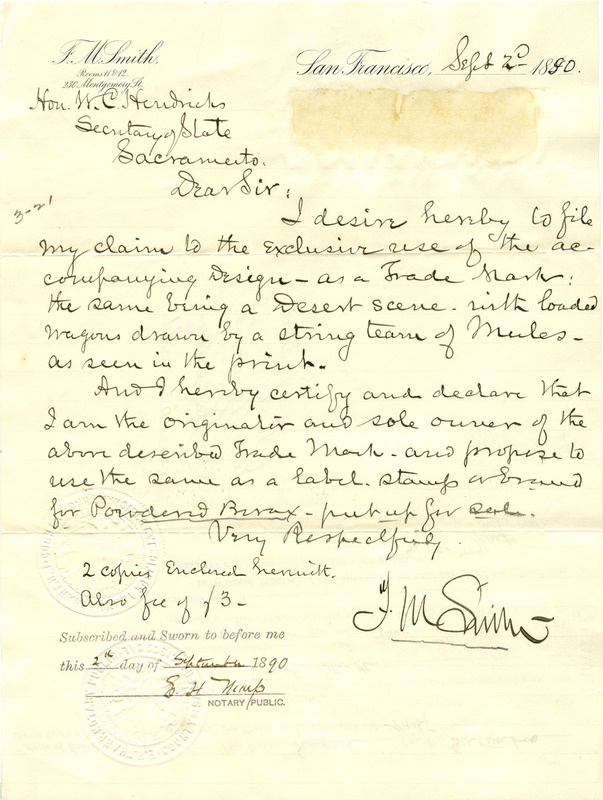 F. M. Smith.
Rooms 11 & 12.
230 Montgomery St.
San Francisco, Sept 2d 1890.
Hon. W. C. Hendricks
Secretary of State
Sacramento.
Dear Sir;
3-21
I desire hereby to file
my claim to the exclusive use of the ac-
companying Design - as a Trade Mark;
the same being a Desert scene - with loaded
wagons drawn by a string team of Mules -
as seen in the print.
And I hereby certify and declare that
I am the originator and sole owner of the
above described Trade Mark - and propose to
use the same as a label. stamp or Brand
for Powdered Borax - put up for sale.
Very Respectfully.
2 copies Enclosed herewith.
Also fee of $3-
F. M. Smith
Subscribed and Sworn to before me
this 2th day of September 1890
E. H.
NOTARY PUBLIC.